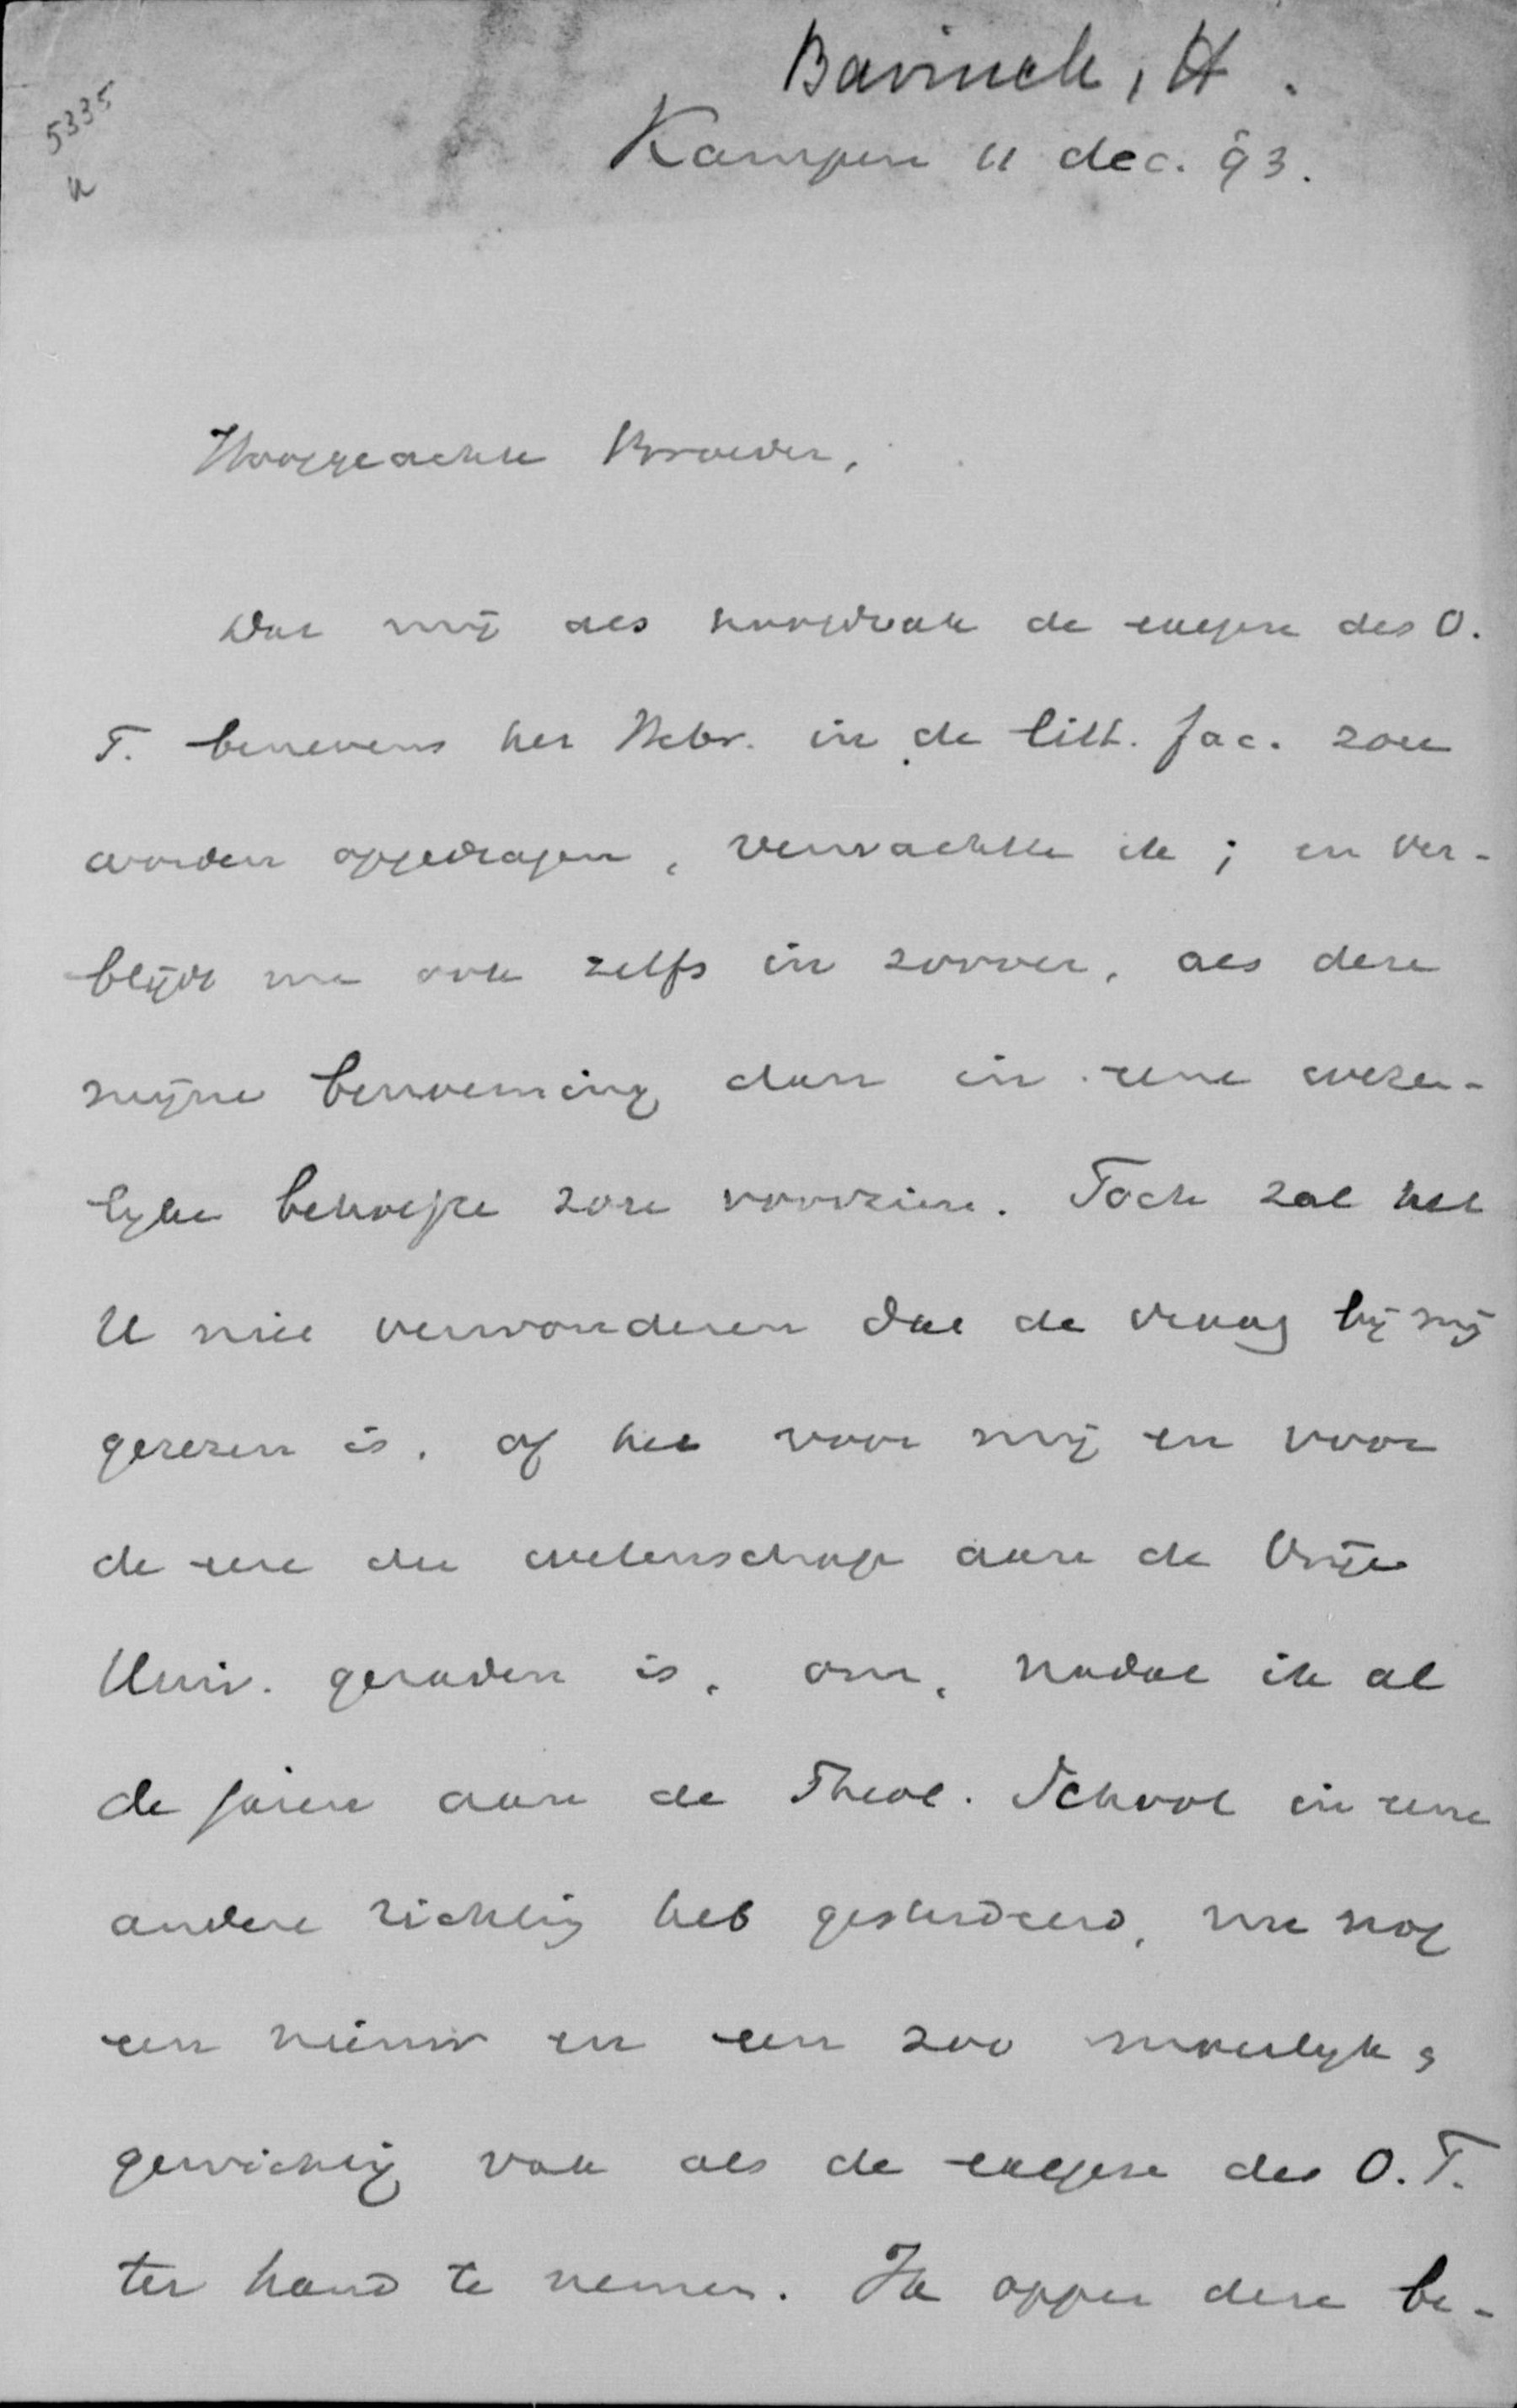 Bavinck, H.
5335
Kampen 11 dec. 93.
Hooggeachte Broeder,
Dat mij als hoofdvak de exegese des O.
T. benevens het Hebr. in de litt. fac. zou
worden opgedragen, verwachtte ik; en ver-
blijdt me ook zelfs in zoover, als deze
mijne benoeming dan in eene wezen-
lijke behoefte zou voorzien. Toch zal het
U niet verwonderen dat de vraag bij mij
gerezen is, of het voor mij en voor
de eer der wetenschap aan de Vrije
Univ. geraden is, om, nadat ik al
de jaren aan de Theol. School in eene
andere richting heb gestudeerd, nu nog
een nieuw en een zoo moeilijk &
gewichtig vak als de exegese des O.T.
ter hand te nemen. Ik opper deze be-